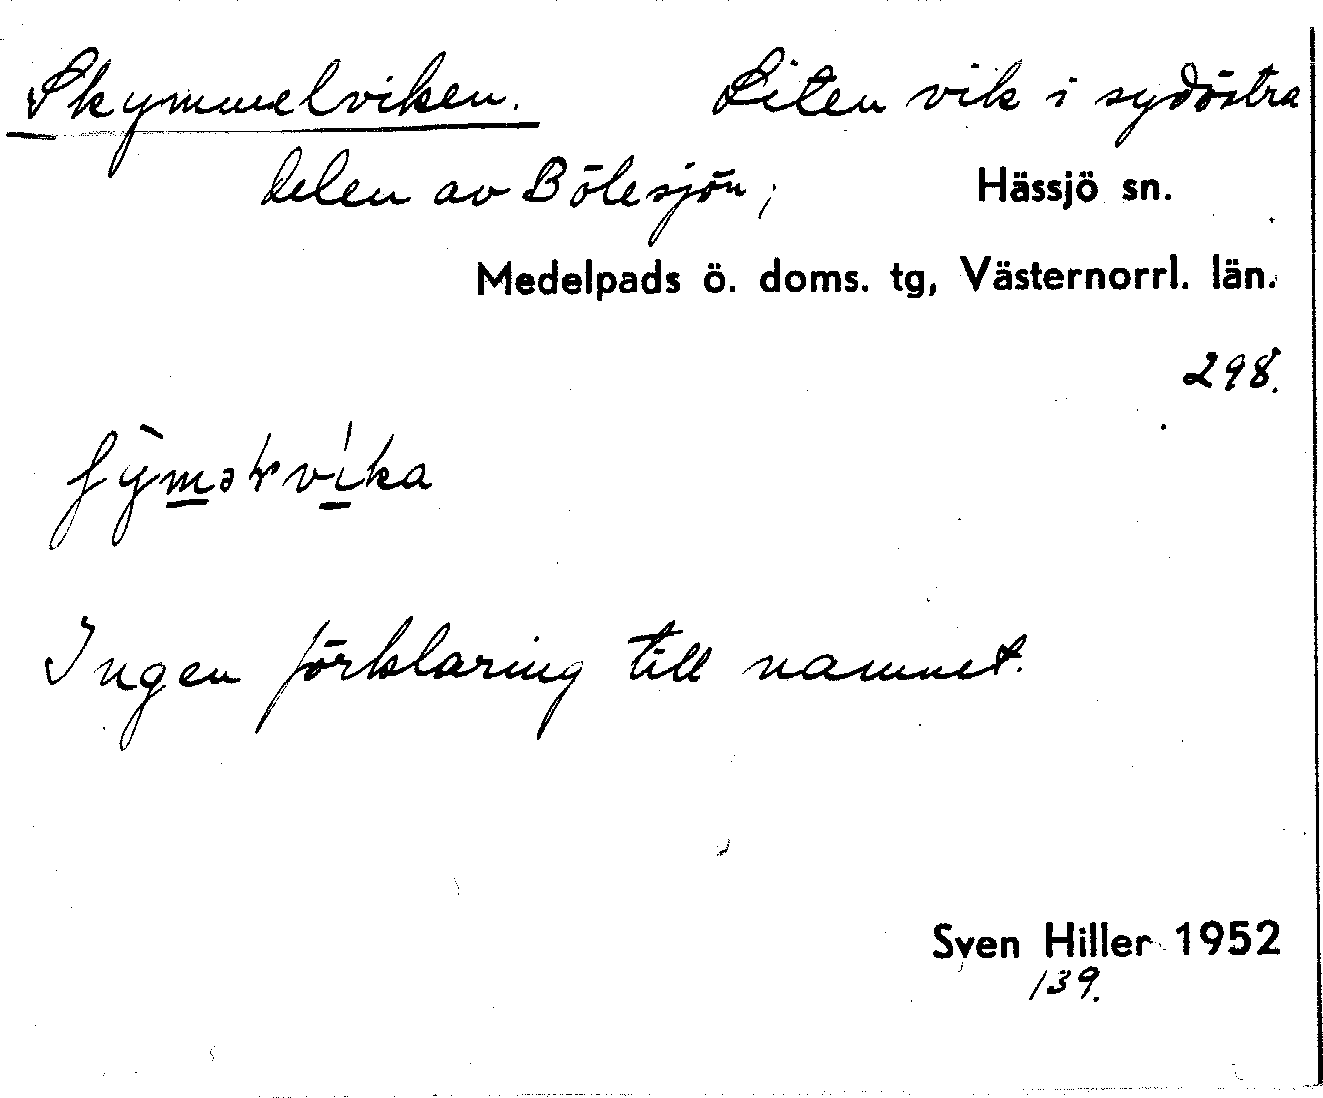 Skymmelviken. Liten vik i sydöstra
delen av Bölesjön, Hässjö sn.
Medelpads ö. doms. tg, Västernorrl. län.
298.
Ingen förklaring till namnet.
Sven Hiller 1952
139.